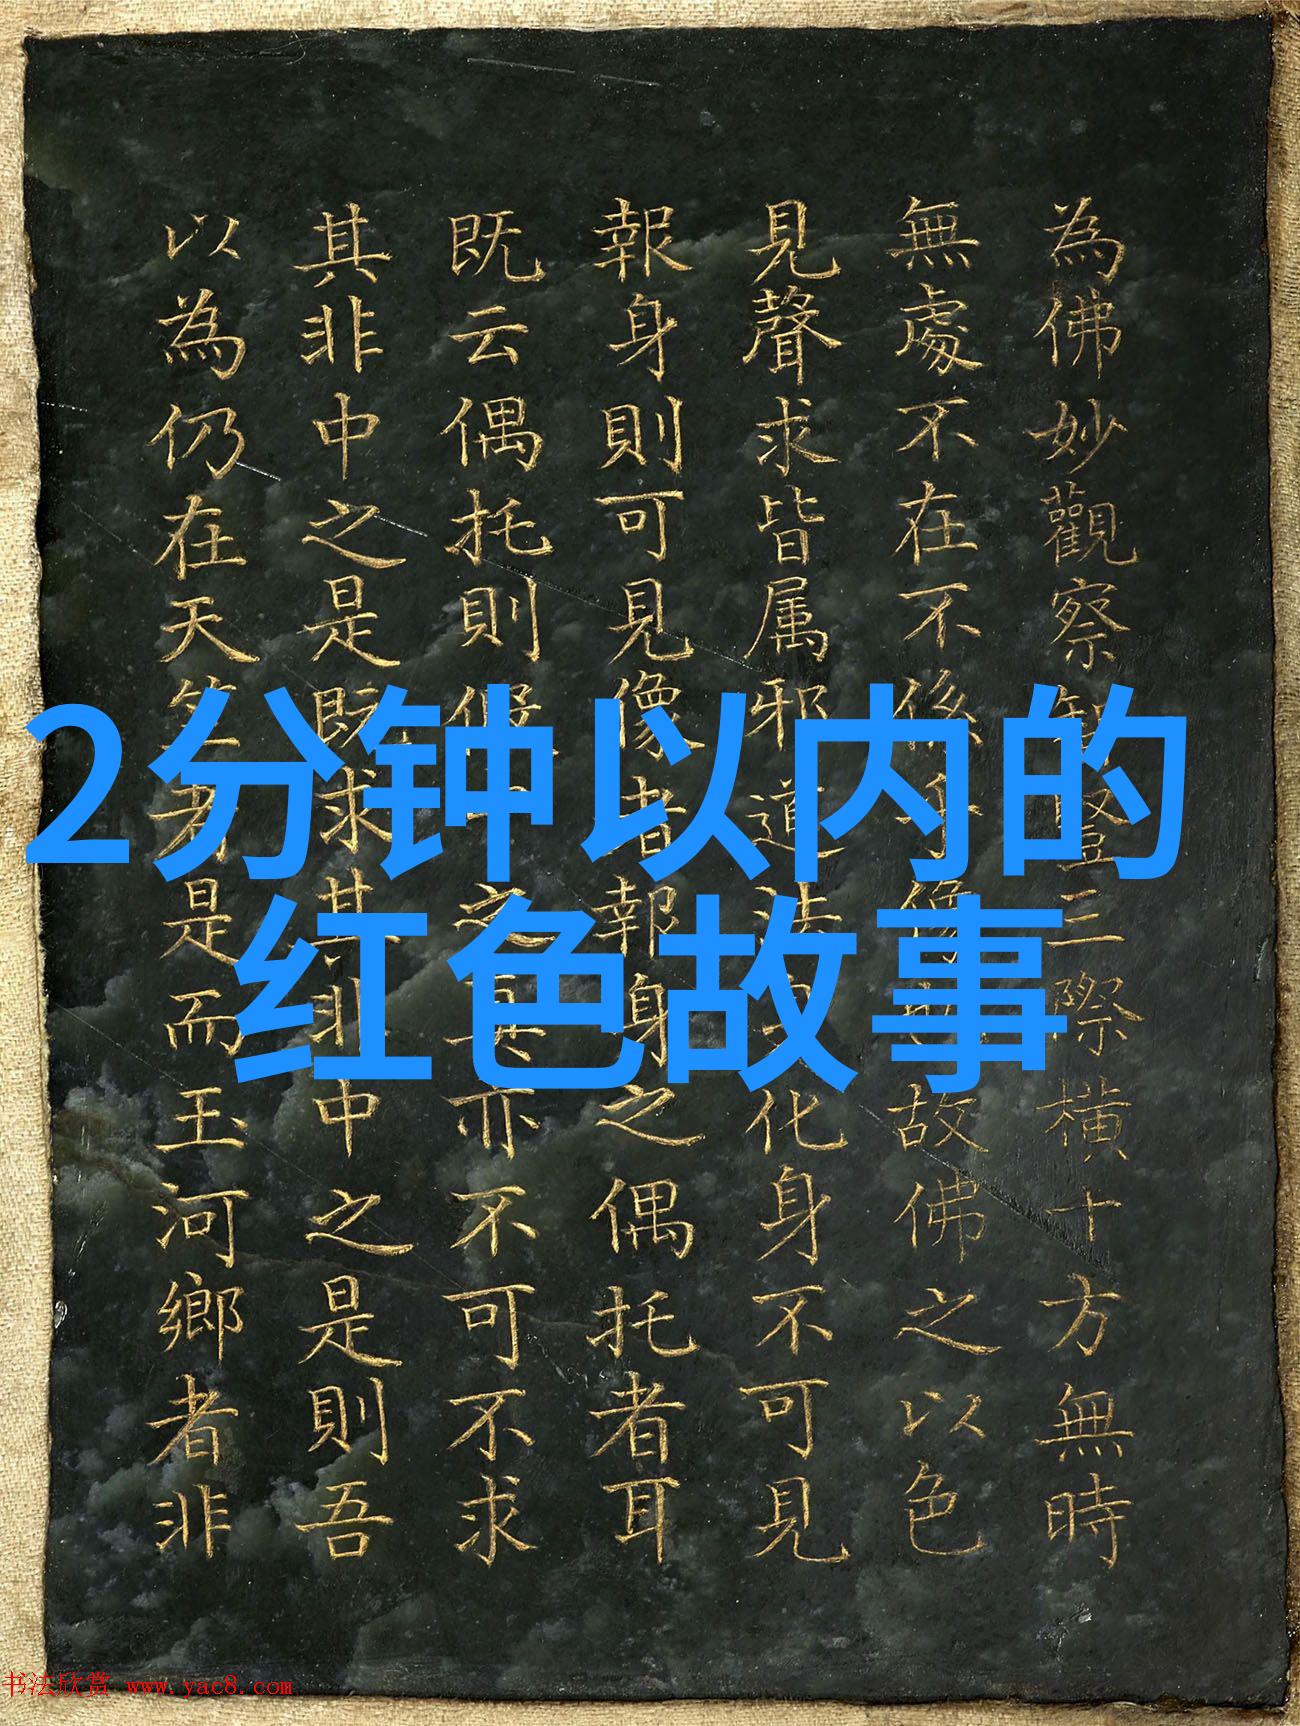 為佛妙觀察智豎三際横十方無時
無處不在不係乎像也故佛之以色
見聲求皆属邪道法身化身不可見
報身則可見像者報身之偶托者耳
既云偶托則假之真亦不可不求
其非中之是既求其非中之是則吾
以為仍在天竺者是而玉河鄉者非
2分钟以内的
红色故事
书法欣赏 www.yac8.com